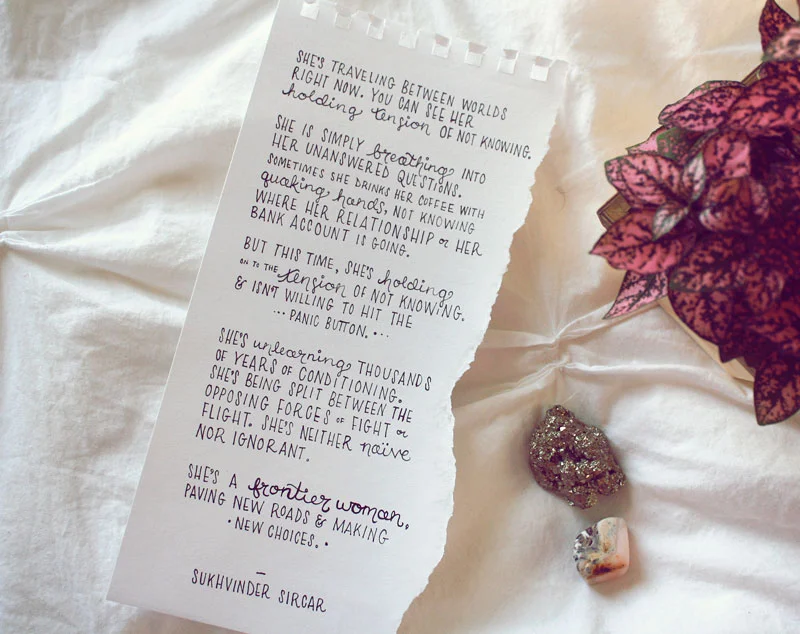 SHE'S TRAVELING BETWEEN WORLDS
RIGHT NOW. YOU CAN SEE HER
holding tension OF NOT KNOWING.
SHE IS SIMPLY breathing INTO
HER UNANSWERED QUESTIONS.
SOMETIMES SHE DRINKS HER COFFEE WITH
quaking hands, NOT KNOWING
WHERE HER RELATIONSHIP or HER
BANK ACCOUNT IS GOING.
BUT THIS TIME, SHE'S holding
ON TO THE tension OF NOT KNOWING.
& ISN'T WILLING TO HIT THE
... PANIC BUTTON. ...
SHE'S unlearning THOUSANDS
OF YEARS OF CONDITIONING.
SHE'S BEING SPLIT BETWEEN THE
OPPOSING FORCES OF FIGHT or
FLIGHT. SHE'S NEITHER naive
NOR IGNORANT.
SHE'S A frontier woman,
PAVING NEW ROADS & MAKING
• NEW CHOICES. •
–
SUKHVINDER SIRCAR